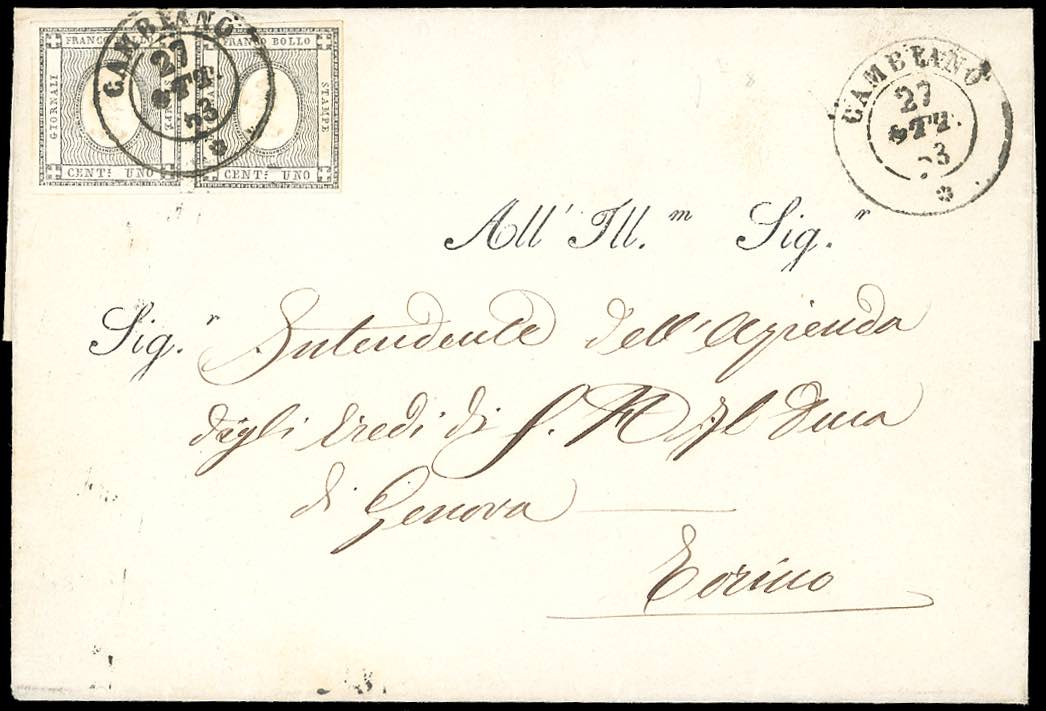 FRANCO BOLLO
GIORNALI
STAMPE
CENT: UNO
FRANCO BOLLO
STAMPE
CENT: UNO
CAMBIANO
27
OTT
63
CAMBIANO
27
OTT.
63
All' Ill.m Sig.r
Sig.r Intendente dell'Azienda
degli Eredi di S. A. R. Il Duca
di Genova
Torino